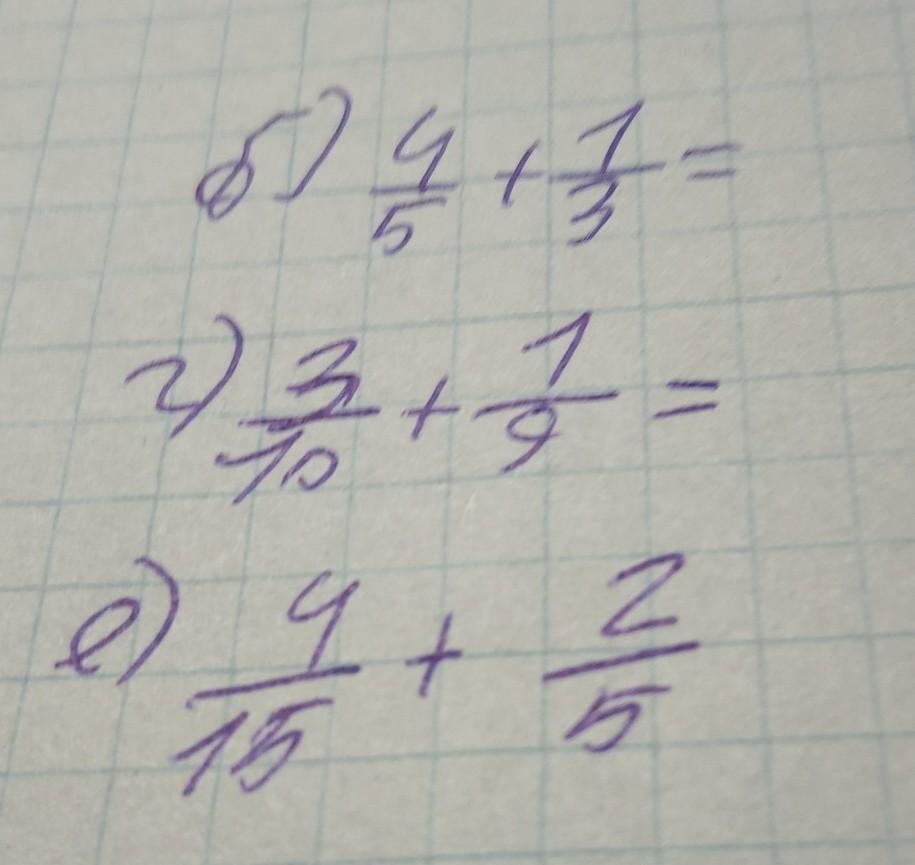 б) 4/5 + 1/3 =
г) 3/10 + 1/9 =
е) 4/15 + 2/5